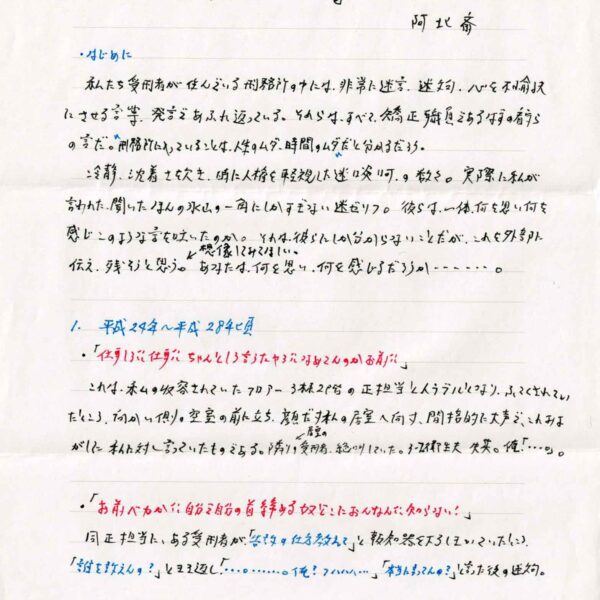 阿北斎
・はじめに
私たち受刑者が住んでいる刑務所の中には、非常に迷言、迷句、心を不愉快
にさせる言葉、発言であふれ返っている。それらは、すべて、矯正職員であるはずの者らの
言だ。刑務所に入っていることは、人生のムダ、時間のムダだと分かるだろう。
冷静、沈着さを欠き、時に人格を軽視した迷口 の数々。実際に私が
言われた、聞いたほんの氷山の一角にしかすぎない迷セリフ。彼らは、一体、何を思い何を
感じこのような言を吐いたのか。それは彼らにしか分からないことだが、これを外部に
想像してみてほしい。
伝え、残そうと思う。あなたは、何を思い、何を感じるだろうか……。
1. 平成24年~平成28年頃
・「仕事しろよ仕事よ ちゃんとしろ なめてんのかお前よ」
これは、私の収容されていたフロアー の正担当と人トラブルになり、ふてくされてい
たところ、向かい側の空室の前に立ち、顔だす私の居室へ向け、間接的に大声で、これみよ
がしに私に対し言っていたものである。隣の居室の受刑者、 していた。 失笑。俺「…。」
・「お前バカかよ自分で自分の首締める奴どこにおんなんだ知らない!」
同正担当に、ある受刑者が、「 の仕方教えて」と報知器を下ろしていていたところ、
「誰を教えんの?」と 返し「…。……。俺? ハハハハ…」「本当に言ってんの?」と言った後の迷句。